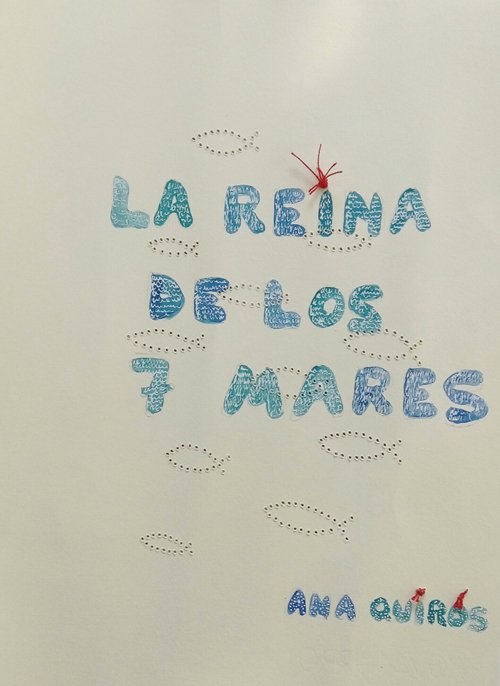 LA REINA
DE LOS
7 MARES
ANA QUIRÓS